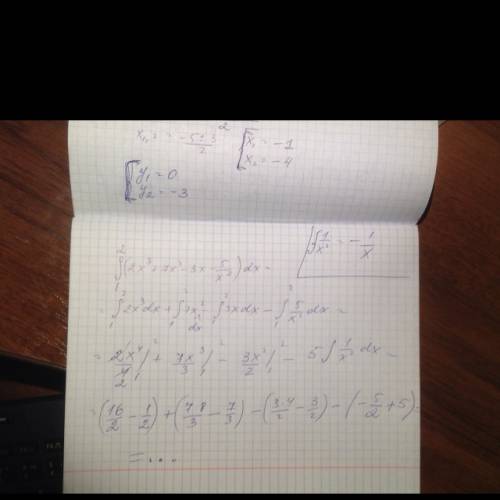 x₁,₂ = (-5±3)/2 [x₁ = -1
x₂ = -4
[y₁ = 0
y₂ = -3
∫₁²(2x³+7x²-3x-5/x²)dx= |∫1/x² = -1/x
= ∫₁²2x³dx + ∫₁²7x²dx - ∫₁²3xdx - ∫₁²5/x²dx =
= 2x⁴/4 |₁² + 7x³/3 |₁² - 3x²/2 |₁² - 5∫1/x²dx =
=(16/2 - 1/2) + (7·8/3 - 7/3) - (3·4/2 - 3/2) - (-5/2 + 5) =
= ...